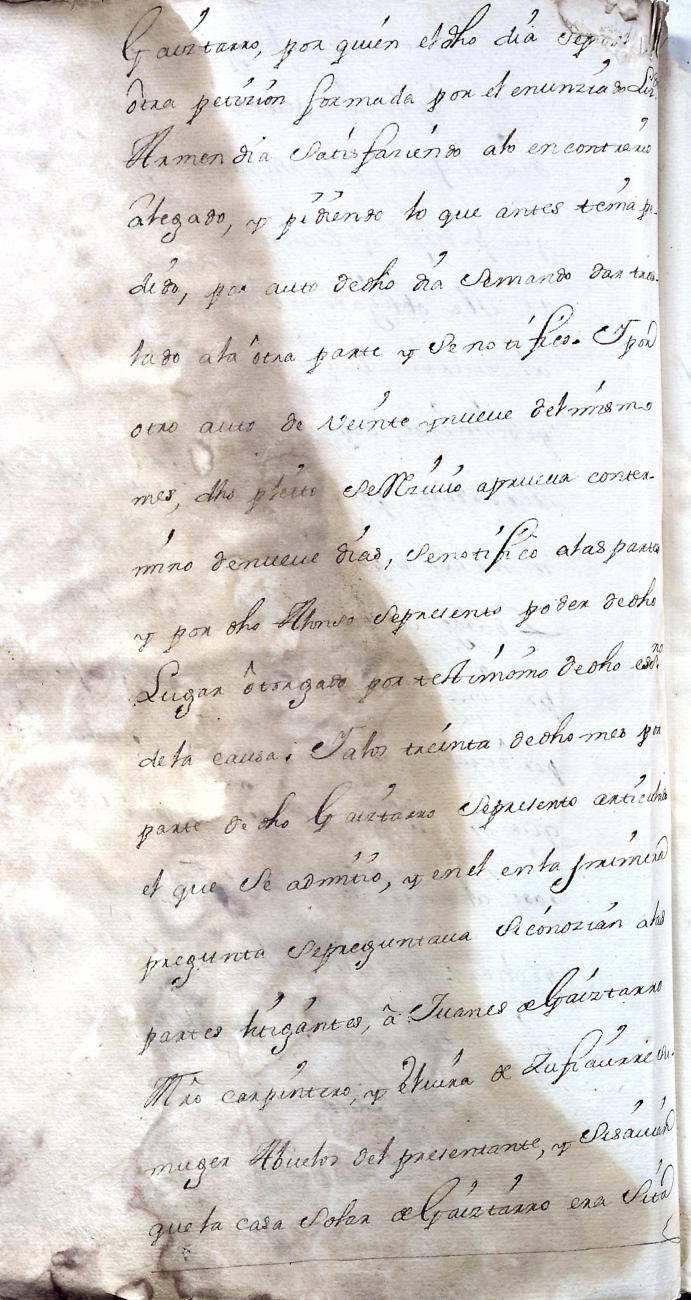 Gaiztarro, por quien el dho dia se
otra petizion formada por el enunziado Liz.
Armendia Satisfaziendo alo encontrario
alegado, y pidiendo lo que antes tenia pe-
dido, por auto de dho dia Semando dar tras-
lado ala otra parte y Senotifico. Y por
otro auto de Veinte ynueve del mismo
mes, dho pleito SeRzivio aprueva conter-
mino denueve dias, Senotifico alas partes
y por dho Alonso Sepresento poder de dho
Lugar otorgado por testimonio de dho essno.
dela causa; Y alos treinta de dho mes por
parte de dho Gaiztarro Sepresento articulado
el que Se admitio, y en el en la primera
pregunta Sepreguntava Siconozian alas
partes litigantes, â Juanes de Gaiztarro
Mro carpintero, y Elvira de Zufiaurre su
muger Abuelos del presentante, y Sisavian
que la casa Solar de Gaiztarro era Sita